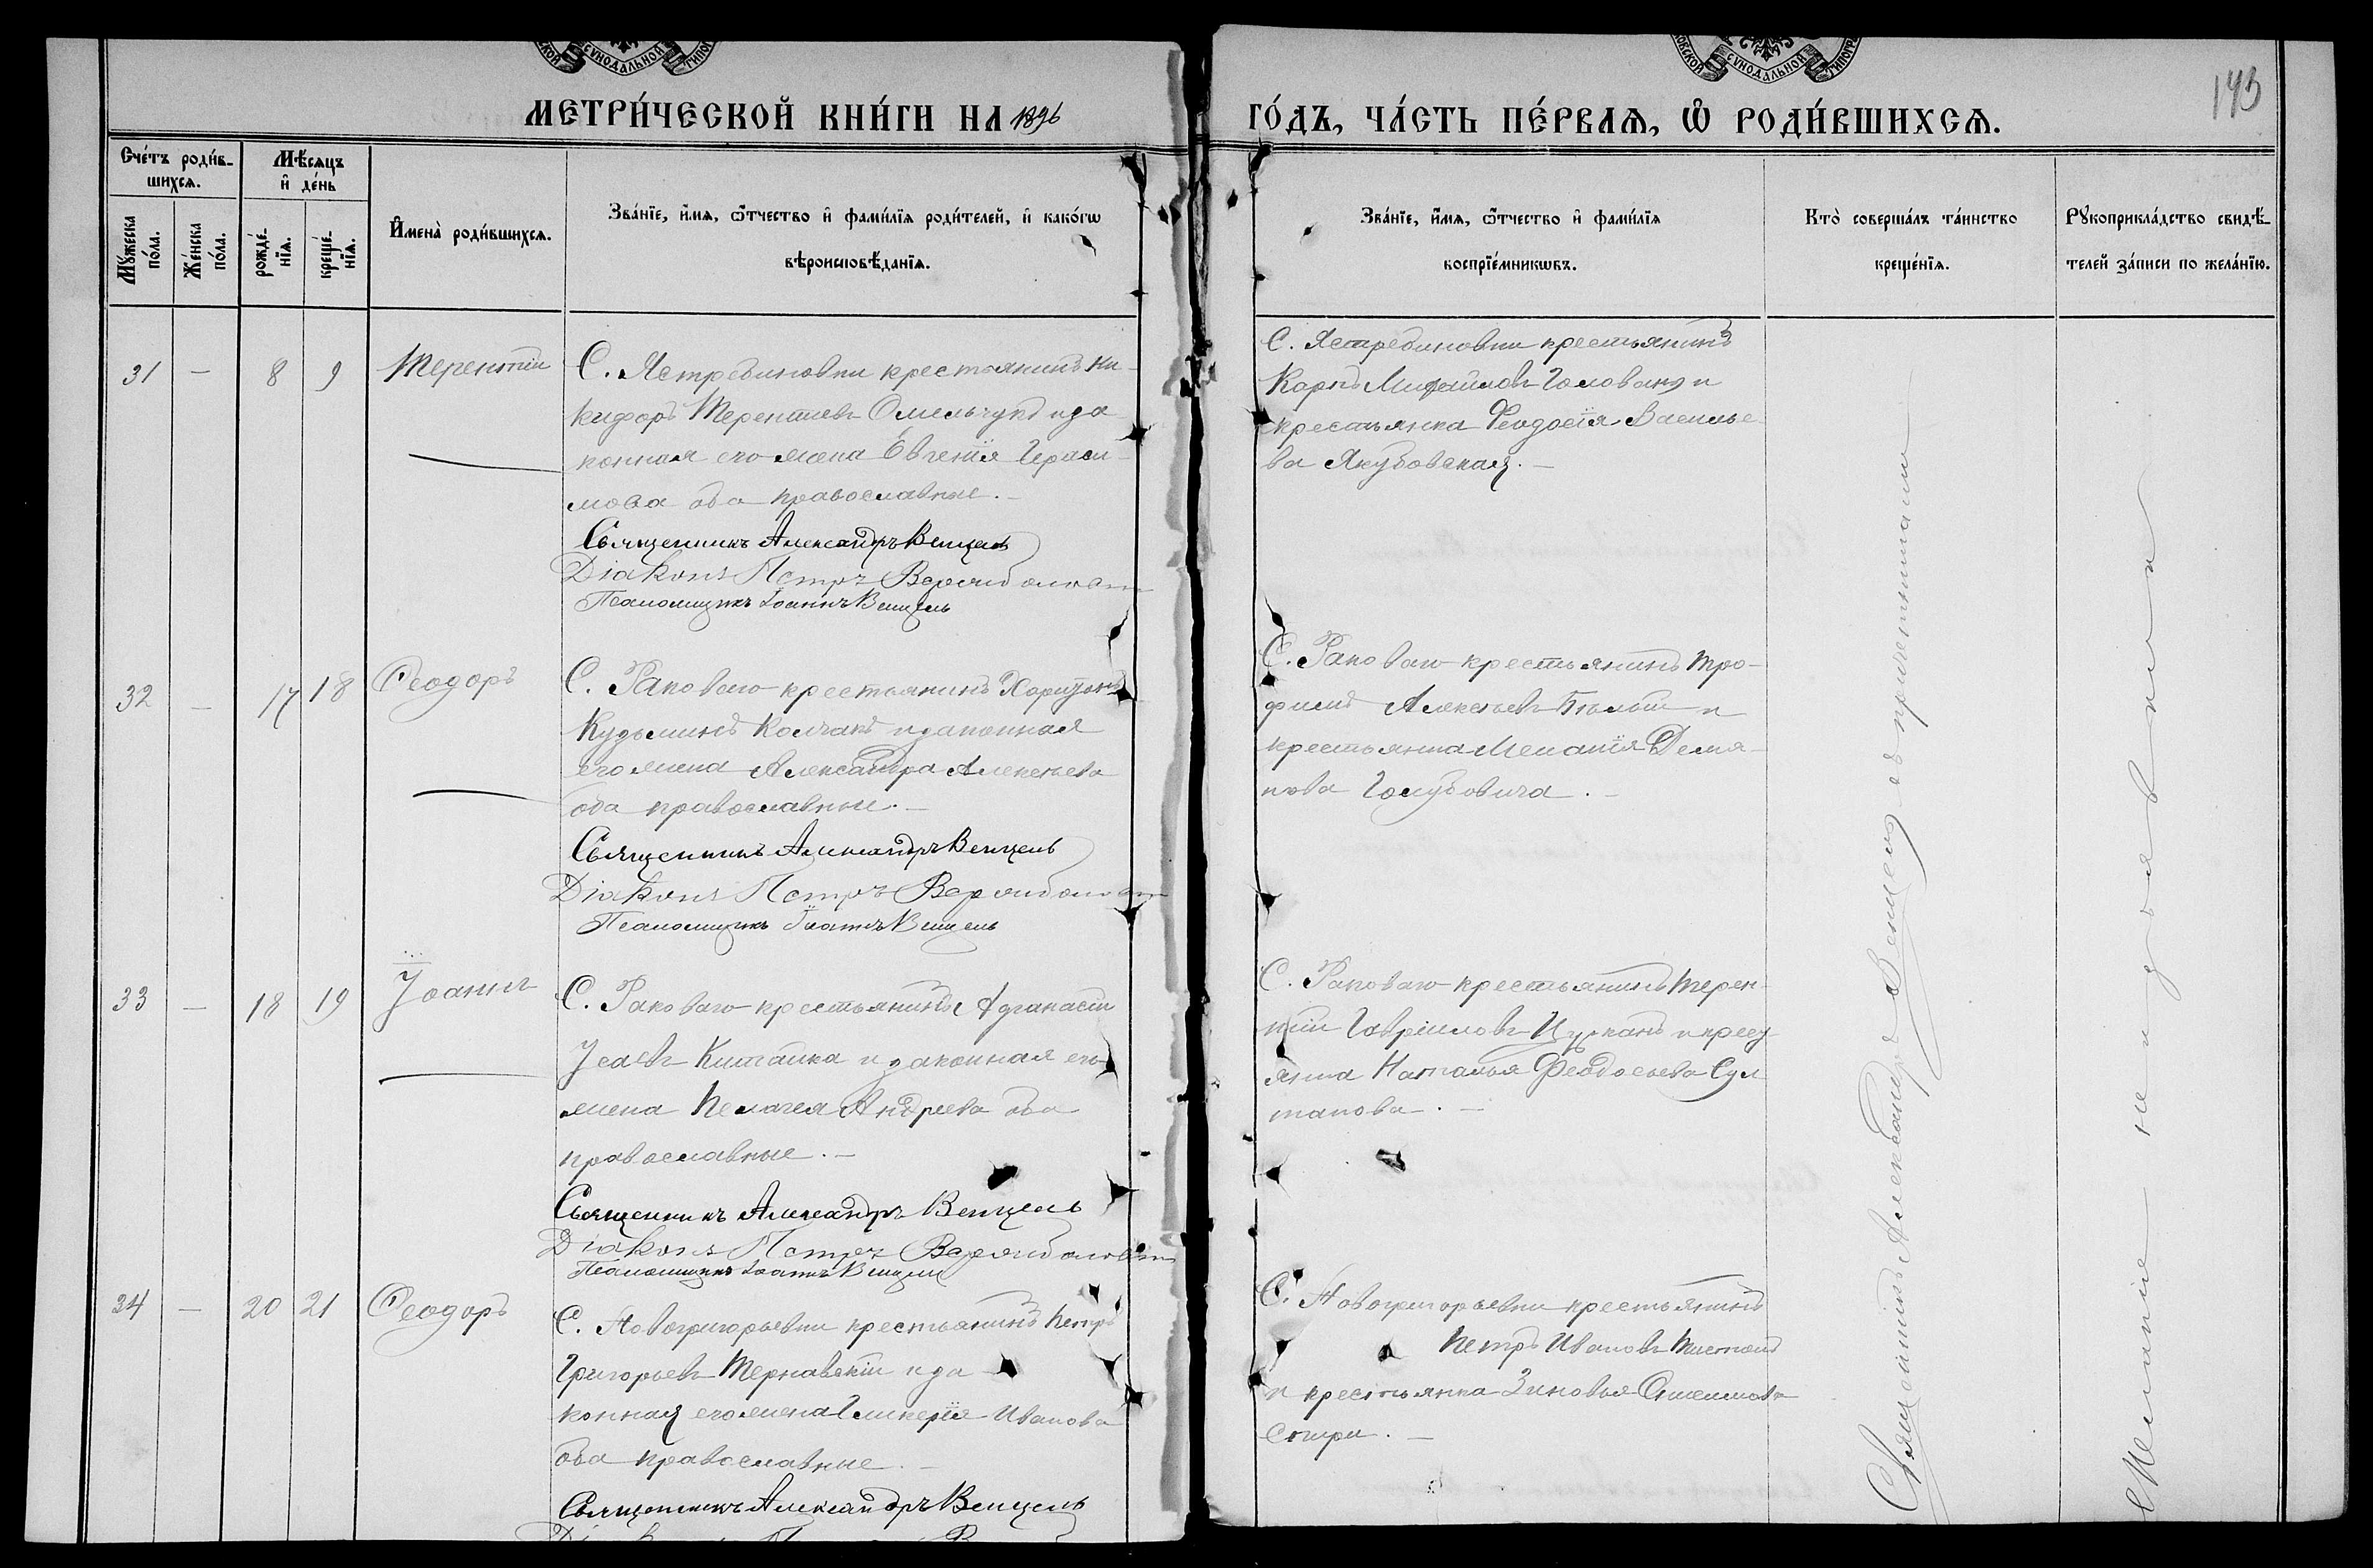 МЕТРИ́ЧЕСКОЙ КНИ́ГИ НА 1896 ГО́ДЪ, ЧА́СТЬ ПЕ́РВАѦ, Ѡ РОДИ́ВШИХСѦ.
193
СУНОДАЛЬНОЙ
СУНОДАЛЬНОЙ
Сче́тъ роди́в-
шихсѧ.
Мꙋжеска по́ла.
Же́нска по́ла.
Мѣ́сѧцъ
и де́нь
рожде́-
нїѧ.
креще́-
нїѧ.
Имена̀ роди́вшихсѧ.
Зва́нїе, и́мѧ, ѻ́тчество и фами́лїѧ роди́телей, и како́гѡ
вѣроисповѣ́данїѧ.
Зва́нїе, и́мѧ, ѻ́тчество и фами́лїѧ
воспрїе́мникѡвъ.
Кто̀ соверша́лъ та́инство
креще́нїѧ.
Рꙋкоприкла́дство свидѣ́-
телей за́писи по жела́нїю.
31 — 8 9 Терентій
С. Ястребиновки крестьянинъ Ни-
кифоръ Терентіевъ Омельчукъ и за
конная его жена Евгенія Гераси-
мова оба православные. —
Священникъ Александръ Венцель
Діаконъ Петръ
Псаломщикъ Іоаннъ Венцель
С. Ястребиновки крестьянинъ
Карпъ Михайловъ Голованъ и
крестьянка Феодосія Василье-
ва Якубовская. —
32 — 17 18 Феодоръ
С. Раковаго крестьянинъ Харитонъ
Кузьминъ Колчакъ и законная
его жена Александра Алексѣева
оба православные. —
Священникъ Александръ Венцель
Діаконъ Петръ
Псаломщикъ Іоаннъ Венцель
С. Раковаго крестьянинъ Тро-
фимъ Алексѣевъ Бѣлый и
крестьянка Меланія Демя-
нова Голубовича. —
33 — 18 19 Іоаннъ
С. Раковаго крестьянинъ Афанасій
Исаевъ Китайка и законная его
жена Пелагея Андреева оба
православные. —
Священникъ Александръ Венцель
Діаконъ Петръ
Псаломщикъ Іоаннъ Венцель
С. Раковаго крестьянинъ Терен-
тій Гавріиловъ Цурканъ и крест
янка Наталья Феодосьева Сул
танова. —
34 — 20 21 Феодоръ
С. Новогригорьевки крестьянинъ Петръ
Григорьевъ Тернавскій и за
конная его жена Гликерія Иванова
оба православные. —
Священникъ Александръ Венцель
С. Новогригорьевки крестьянинъ
Петръ Ивановъ
и крестьянка Зиновья
Священникъ Александръ Венцель съ причетниками
Желаніе не изъявили